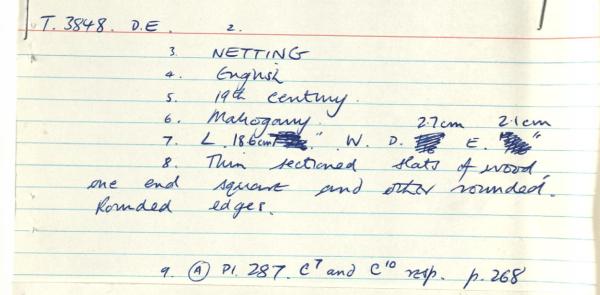 T. 3848. D.E. 2.
3. NETTING
4. English
5. 19th Century.
6. Mahogany. 2.7cm 2.1cm
7. L. 18.6cm " W. D. E. "
8. Thin sectioned slats of wood,
one end square and other rounded.
Rounded edges.
9. (A) Pl. 287. C7 and C10 resp. p. 268